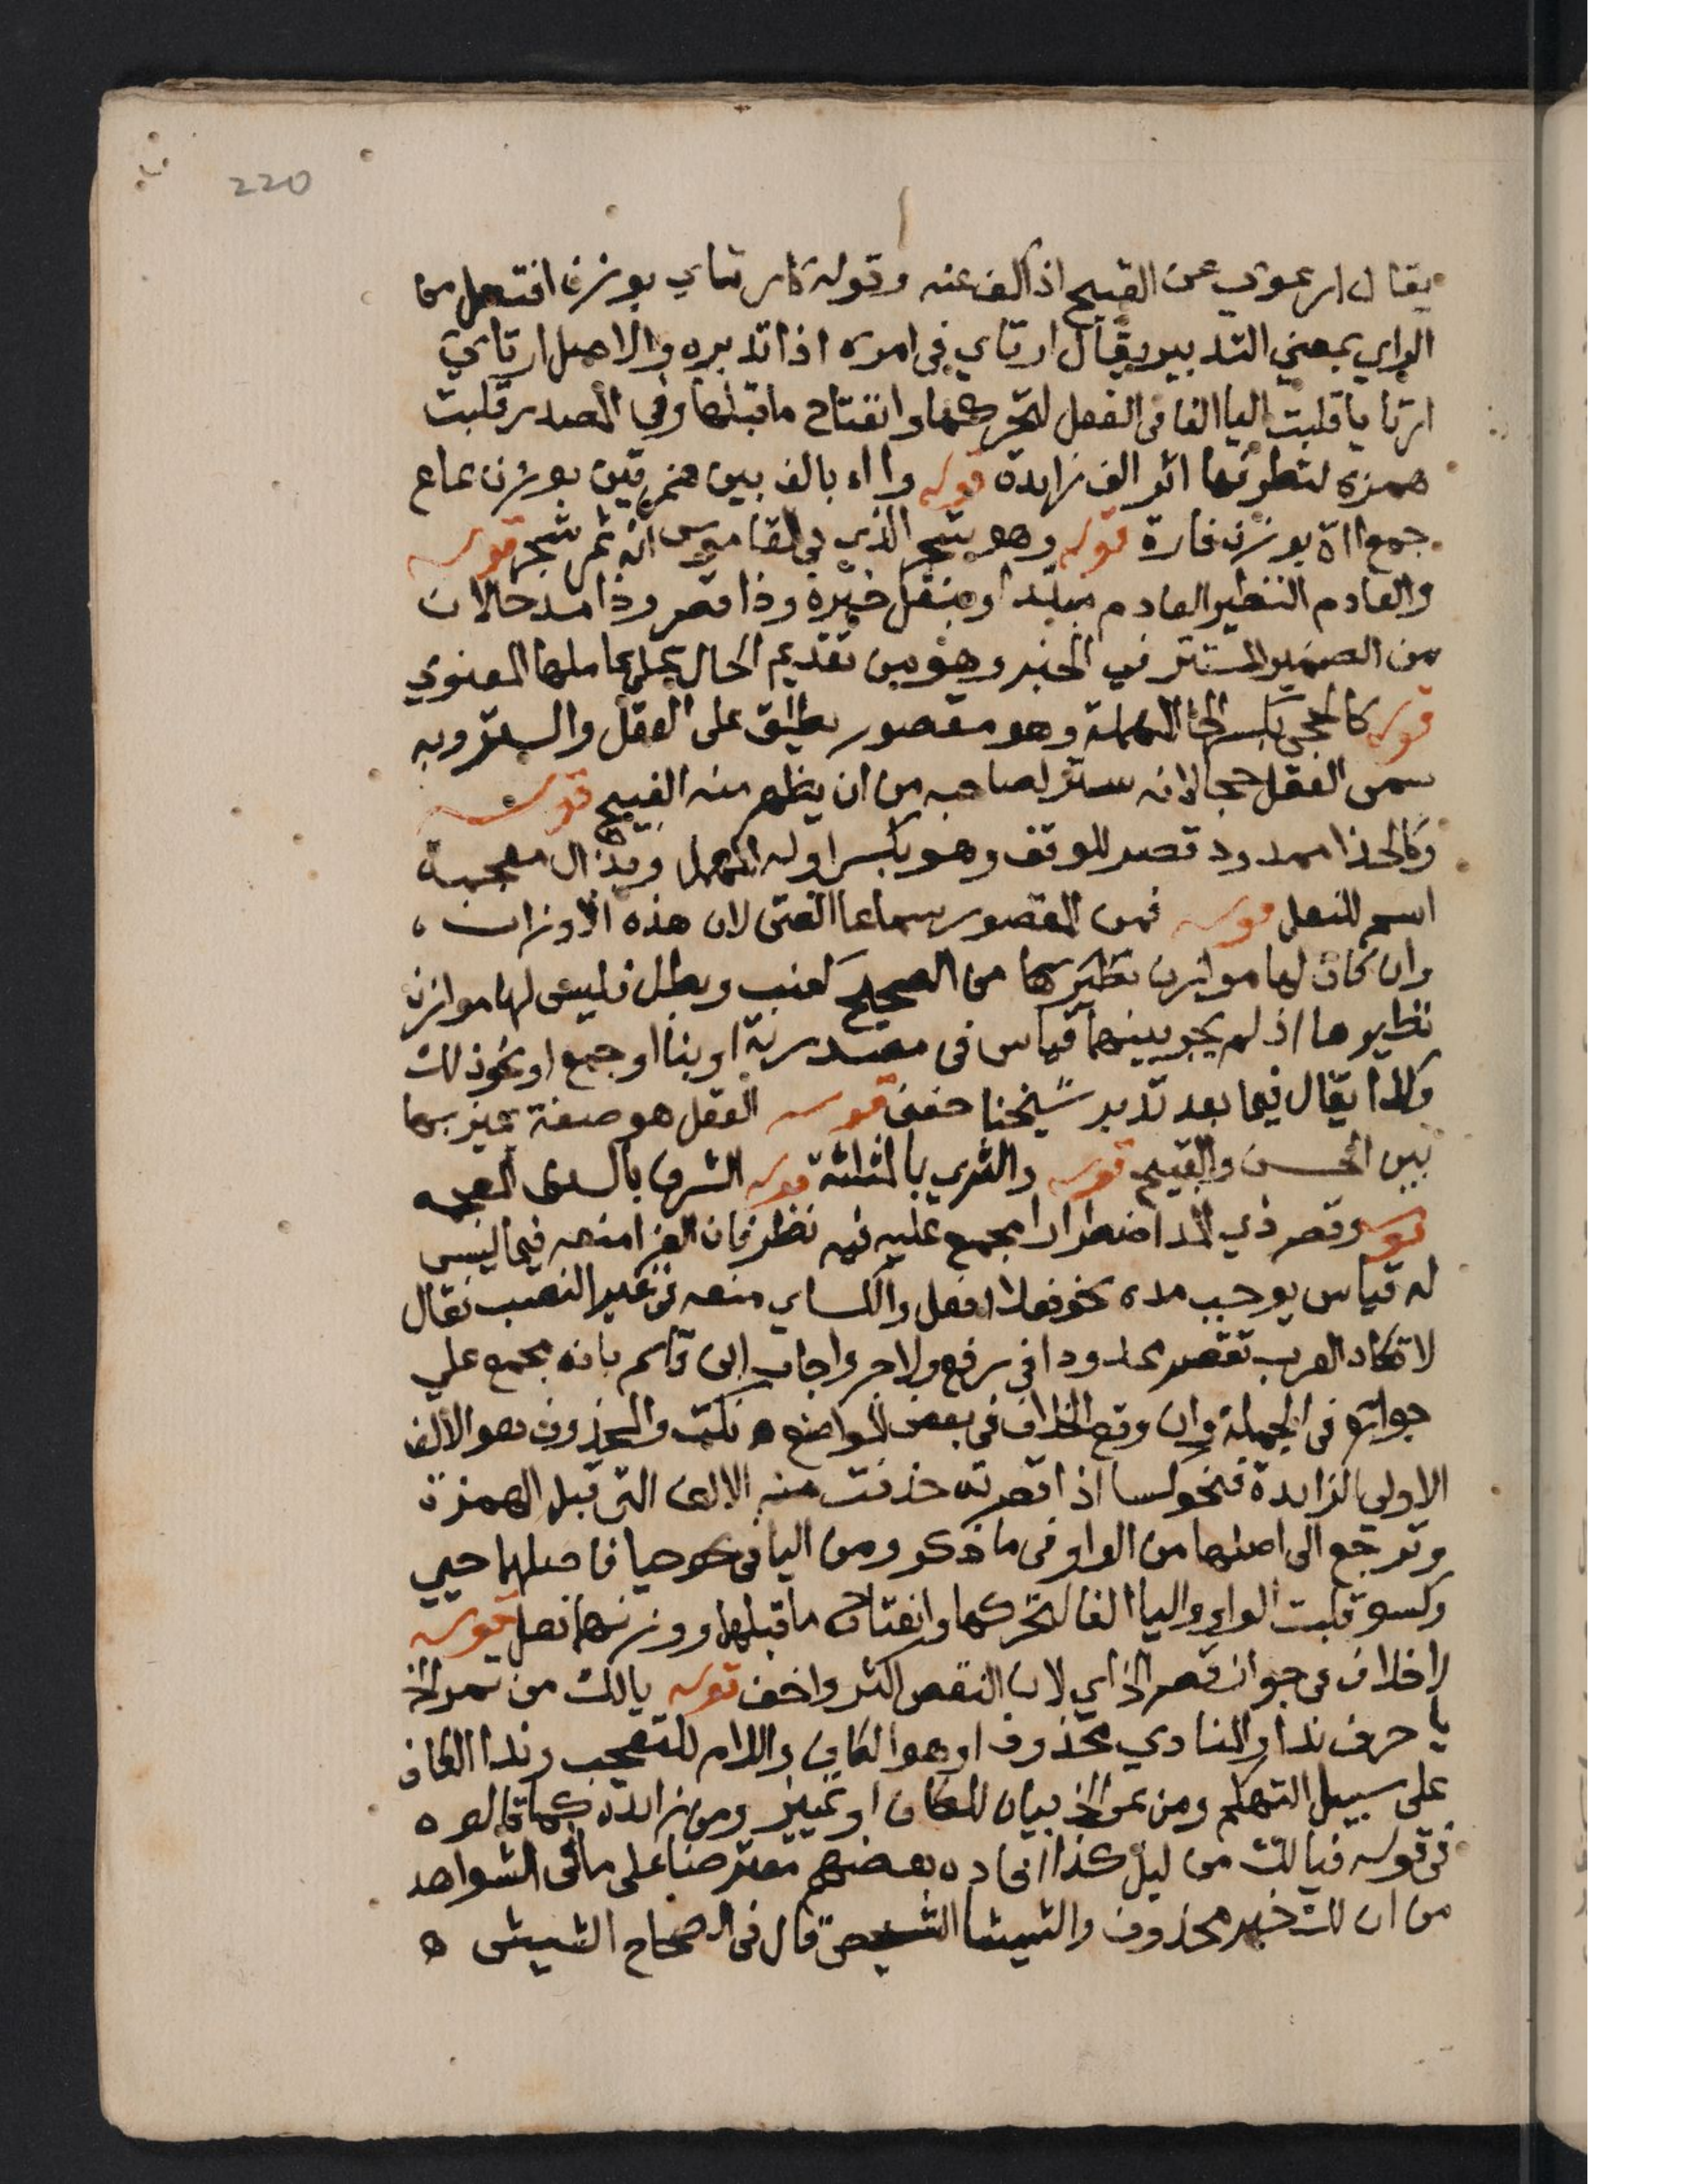 220
يقال ارعوي عن القبيح اذا كف عنه وقوله كارتاي بوزن افتعل من
الراي بمعني التدبير يقال ارتاي في امره اذا تدبره والاصل ارتاي
ارتايا قلبت اليا الفا في الفعل لتحركها وانفتاح ما قبلها وفي المصدر قلبت
همزة لتطرفها اثر الف زايدة قوله وااء بالف بين همزتين بوزن عاع
جمع ااة بوزن غارة قوله وهو شجر الذي في القاموس انه ثمر شجر قوله
والعادم النظير العادم مبتدا وبنقل خبره وذا قصر وذا مد حالان
من الضمير المستتر في الخبر وهو من تقديم الحال على عاملها المعنوي
قوله كالحجي بكسر الحا المهملة وهو مقصور يطلق على العقل والستر وبه
سمى العقل حجا لانه ستر لصاحبه من ان يظهر منه القبيح قوله
وكالحذا ممدود قصر للوقف وهو بكسر اوله المهمل وبذال معجمة
اسم للنعل قوله فمن المقصور سماعا الفتى لان هذه الاوزان
وان كان لها موازن نظيرها من الصحيح كعنب وبطل فليس لها موازن
نظيرها اذ لم يجر بينهما قياس في مصدرية او بنا او جمع او نحو ذلك
وكذا يقال فيما بعد تدبر شيخنا حفنى قوله العقل هو صفة يميز بها
بين الحسن والقبيح قوله والثري بالمثلثة قوله الشرف بالسين المعجمه
قوله وقصر ذي المد اضطرارا مجمع عليه فيه نظر فان الفرا منعه فيما ليس
له قياس يوجب مده نحو فعلا افعل والكساي منعه في غير النصب فقال
لا تكاد العرب تقصر ممدودا في رفع ولا جر واجاب ابن قاسم بانه مجمع علي
جوازه في الجملة وان وقع الخلاف في بعض المواضع ه نكت والمحذوف هو الالف
الاولي الزايدة فنحو كسا اذا قصرته حذفت منه الالف التى قبل الهمزة
وترجع الى اصلها من الواو في ما ذكر ومن اليا في نحو حيا فاصلها حيي
وكسو قلبت الواو واليا الفا لتحركها وانفتاح ما قبلها ووزنهما فعل قوله
لا خلاف في جواز قصر الخ اي لان النقص اكثر واخف قوله يا لك من تمر الخ
يا حرف ندا والمنادي محذوف او هو الكاف واللام للتعجب وندا الكاف
على سبيل التهكم ومن تمر الخ بيان للكاف او تمييز ومن زايدة كما قالوه
في قوله فيا لك من ليل كذا افاده بعضهم معترضا على ما في الشواهد
من ان لك خبر محذوف والشيشا الشيص قال في الصحاح الشيش ه